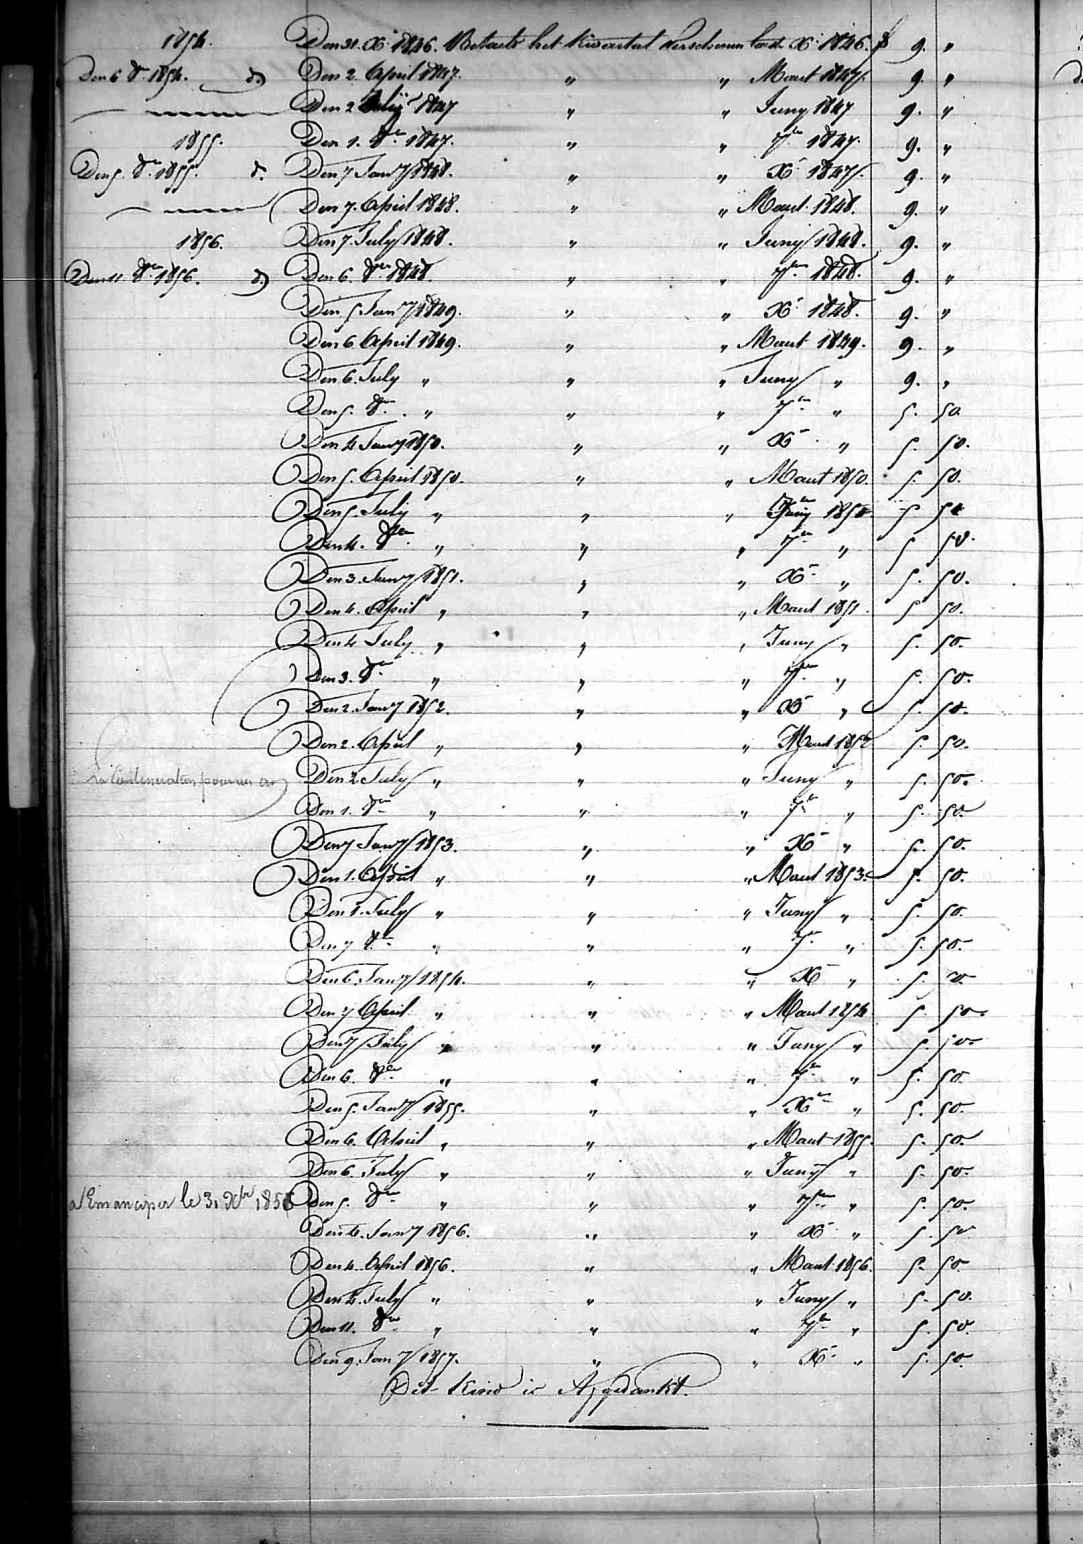 1854. Den 31. Xb. 1846. Betaelt het Kwartael Verschenen laest. Xb. 1846. f 9. "
Den 6. 8r. 1854. d. Den 2. April 1847. " " Maert 1847. 9. "
Den 2. July 1847 " " Juny 1847 9. "
1855. Den 1. 8er. 1847. " " 7er. 1847. 9. "
Den 5. 8r. 1855. d. Den 7 Janry 1848. " " Xb. 1847. 9. "
Den 7. April 1848. " " Maert. 1848. 9. "
1856. Den 7. July 1848. " " Juny 1848. 9. "
Den 11. 8er 1856. d. Den 6. 8er. 1848. " " 7er. 1848. 9. "
Den 5 Janry 1849. " " Xb. 1848. 9. "
Den 6 April 1849. " " Maert 1849. 9. "
Den 6. July " " " Juny " 9. "
Den 5. 8er. " " " 7er. " 5. 50
Den 4 Janry 1850. " " Xb. " 5. 50.
Den 5. April 1850. " " Maert 1850. 5. 50.
Den 5. July " " " Juny 1850 5 50
Den 4. 8er. " " " 7er " 5 50.
Den 3. Janry 1851. " " Xb. " 5. 50.
Den 4. April " " " Maert 1851. 5 50.
Den 4 July " " " Juny " 5. 50.
Den 3. 8er " " " 7er. " 5. 50.
Den 2. Janry 1852. " " Xb " 5. 50.
Den 2. April " " " Maert 1852 5. 50.
Den 2 July " " " Juny " 5. 50.
Den 1. 8er " " " 7er " 5. 50
Den 7 Janry 1853. " " Xb " 5. 50.
Den 1. April " " " Maert 1853. 5. 50.
Den 1. July " " " Juny " 5. 50.
Den 7 8er " " " 7er " 5. 50.
Den 6. Janry 1854. " " Xb " 5.
Den 7 April " " " Maert 1854 5. 50.
Den 7 July " " " Juny " 5. 50
Den 6. 8er " " " 7er " 5. 50
Den 5. Janry 1855. " " Xb " 5. 50.
Den 6. April " " " Maert 1855. 5. 50
Den 6. July " " " Juny " 5. 50.
a Emanciper le 31 Xbr 1856 Den 5. 8er " " " 7er " 5. 50.
Den 4. Janry 1856. " " Xb " 5. 50
Den 4. April 1856. " " Maert 1856. 5. 50.
Den 4. July " " " Juny " 5. 50.
Den 11. 8er " " " 7er " 5. 50.
Den 9. Janry 1857. " " Xb. " 5. 50.
Dit Kind is Afgedankt.